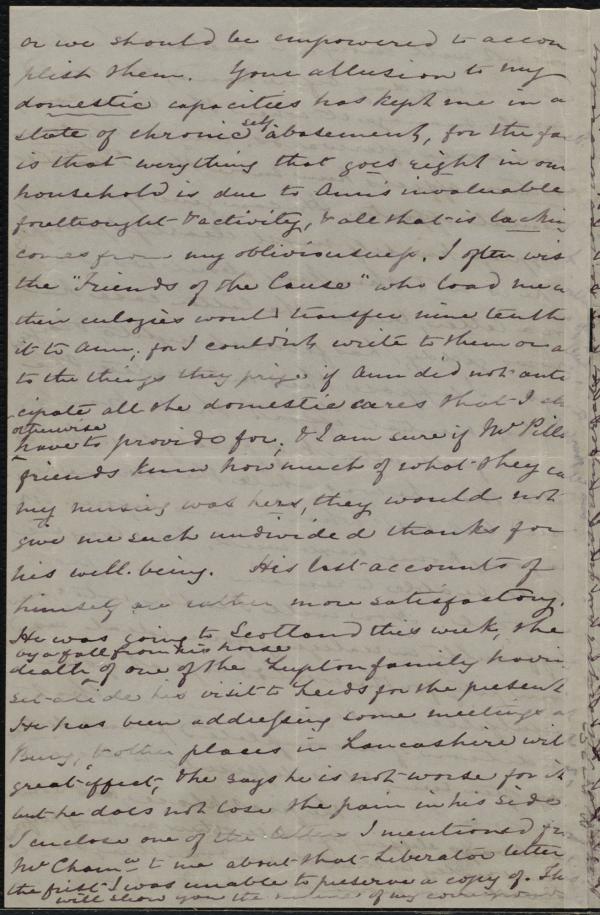 or we should be empowered to accom
plish them. Your allusion to my
domestic capacities has kept me in a
state of chronic self abasement, for the fa
is that everything that goes right in our
household is due to Ann's invaluable
forethought & activity, & all that is lackin
comes from my obliviousness. I often wis
the "Friends of the Cause" who load me
their eulogies would transfer nine tenth
it to Ann; for I couldn't write to them or
to the things they prize if Ann did not anti
cipate all the domestic cares that I
otherwise
have to provide for, & I am sure if Mr Pills
friends knew how much of what they ca
my nursing was hers, they would not
give me such undivided thanks for
his well-being. His last accounts of
himself are rather more satisfactory.
He was going to Scotland this week, the
by a fall from his horse
death of one of the Lupton family havin
set aside his visit to Leeds for the present
He has been addressing some meetings
Bury, & other places in Lancashire wit
great effect, & he says he is not worse for it
but he does not lose the pain in his side
I enclose one of the letters I mentioned
Mr Cham to me about that Liberator letter
the first I was unable to preserve a copy of.
will show you the of my